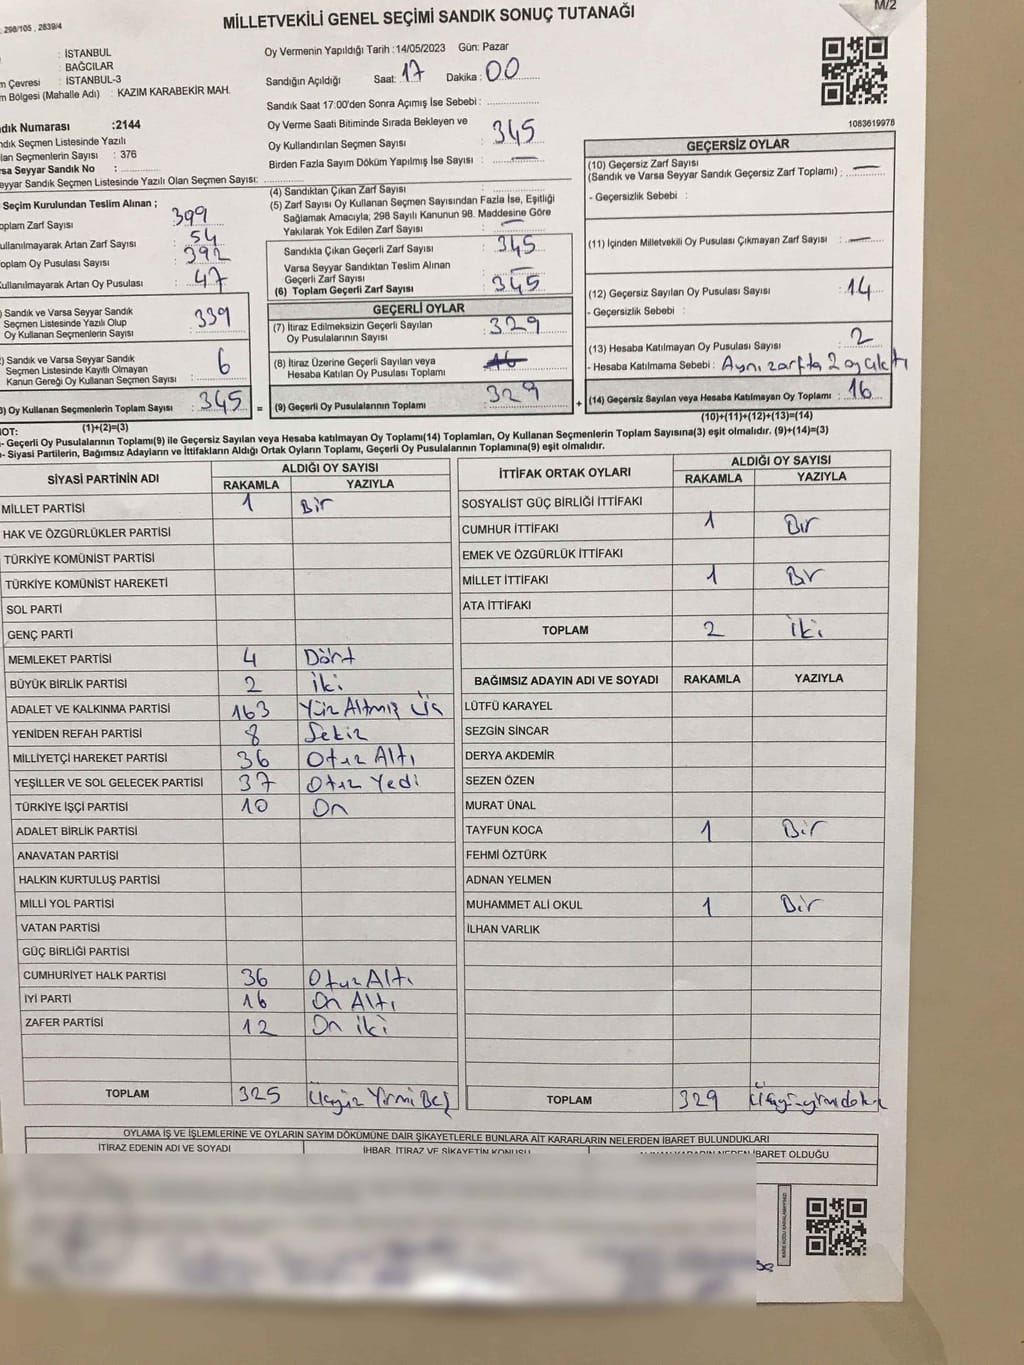 M/2
, 298/105 , 2839/4
MİLLETVEKİLİ GENEL SEÇİMİ SANDIK SONUÇ TUTANAĞI
: İSTANBUL
: BAĞCILAR
m Çevresi : İSTANBUL-3
m Bölgesi (Mahalle Adı) : KAZIM KARABEKİR MAH.
ndık Numarası :2144
ndık Seçmen Listesinde Yazılı
lan Seçmenlerin Sayısı : 376
rsa Seyyar Sandık No :
eyyar Sandık Seçmen Listesinde Yazılı Olan Seçmen Sayısı:
Oy Vermenin Yapıldığı Tarih :14/05/2023 Gün: Pazar
Sandığın Açıldığı Saat: 17 Dakika : 00
Sandık Saat 17:00'den Sonra Açımış İse Sebebi :
Oy Verme Saati Bitiminde Sırada Bekleyen ve
Oy Kullandırılan Seçmen Sayısı : 345
Birden Fazla Sayım Döküm Yapılmış İse Sayısı : —
1083619978
Seçim Kurulundan Teslim Alınan ;
oplam Zarf Sayısı : 399
ullanılmayarak Artan Zarf Sayısı : 54
oplam Oy Pusulası Sayısı : 392
ullanılmayarak Artan Oy Pusulası : 47
) Sandık ve Varsa Seyyar Sandık
Seçmen Listesinde Yazılı Olup
Oy Kullanan Seçmenlerin Sayısı : 339
) Sandık ve Varsa Seyyar Sandık
Seçmen Listesinde Kayıtlı Olmayan
Kanun Gereği Oy Kullanan Seçmen Sayısı : 6
3) Oy Kullanan Seçmenlerin Toplam Sayısı : 345
=
(4) Sandıktan Çıkan Zarf Sayısı :
(5) Zarf Sayısı Oy Kullanan Seçmen Sayısından Fazla İse, Eşitliği
Sağlamak Amacıyla; 298 Sayılı Kanunun 98. Maddesine Göre
Yakılarak Yok Edilen Zarf Sayısı : —
Sandıkta Çıkan Geçerli Zarf Sayısı : 345
Varsa Seyyar Sandıktan Teslim Alınan
Geçerli Zarf Sayısı : —
(6) Toplam Geçerli Zarf Sayısı : 345
GEÇERLİ OYLAR
(7) İtiraz Edilmeksizin Geçerli Sayılan
Oy Pusulalarının Sayısı : 329
(8) İtiraz Üzerine Geçerli Sayılan veya
Hesaba Katılan Oy Pusulası Toplamı : 16
(9) Geçerli Oy Pusulalarının Toplamı : 329
+
GEÇERSİZ OYLAR
(10) Geçersiz Zarf Sayısı
(Sandık ve Varsa Seyyar Sandık Geçersiz Zarf Toplamı) : —
- Geçersizlik Sebebi :
(11) İçinden Milletvekili Oy Pusulası Çıkmayan Zarf Sayısı : —
(12) Geçersiz Sayılan Oy Pusulası Sayısı : 14
- Geçersizlik Sebebi :
(13) Hesaba Katılmayan Oy Pusulası Sayısı : 2
- Hesaba Katılmama Sebebi : Aynı zarfta 2 oy çıktı
(14) Geçersiz Sayılan veya Hesaba Katılmayan Oy Toplamı : 16
NOT: (1)+(2)=(3) (10)+(11)+(12)+(13)=(14)
- Geçerli Oy Pusulalarının Toplamı(9) ile Geçersiz Sayılan veya Hesaba katılmayan Oy Toplamı(14) Toplamları, Oy Kullanan Seçmenlerin Toplam Sayısına(3) eşit olmalıdır. (9)+(14)=(3)
- Siyasi Partilerin, Bağımsız Adayların ve İttifakların Aldığı Ortak Oyların Toplamı, Geçerli Oy Pusulalarının Toplamına(9) eşit olmalıdır.
SİYASİ PARTİNİN ADI ALDIĞI OY SAYISI
RAKAMLA YAZIYLA
MİLLET PARTİSİ 1 Bir
HAK VE ÖZGÜRLÜKLER PARTİSİ
TÜRKİYE KOMÜNİST PARTİSİ
TÜRKİYE KOMÜNİST HAREKETİ
SOL PARTİ
GENÇ PARTİ
MEMLEKET PARTİSİ 4 Dört
BÜYÜK BİRLİK PARTİSİ 2 İki
ADALET VE KALKINMA PARTİSİ 163 Yüz Altmış Üç
YENİDEN REFAH PARTİSİ 8 Sekiz
MİLLİYETÇİ HAREKET PARTİSİ 36 Otuz Altı
YEŞİLLER VE SOL GELECEK PARTİSİ 37 Otuz Yedi
TÜRKİYE İŞÇİ PARTİSİ 10 On
ADALET BİRLİK PARTİSİ
ANAVATAN PARTİSİ
HALKIN KURTULUŞ PARTİSİ
MİLLİ YOL PARTİSİ
VATAN PARTİSİ
GÜÇ BİRLİĞİ PARTİSİ
CUMHURİYET HALK PARTİSİ 36 Otuz Altı
İYİ PARTİ 16 On Altı
ZAFER PARTİSİ 12 On iki
TOPLAM 325 Üçyüz Yirmi Beş
İTTİFAK ORTAK OYLARI ALDIĞI OY SAYISI
RAKAMLA YAZIYLA
SOSYALİST GÜÇ BİRLİĞİ İTTİFAKI
CUMHUR İTTİFAKI 1 Bir
EMEK VE ÖZGÜRLÜK İTTİFAKI
MİLLET İTTİFAKI 1 Bir
ATA İTTİFAKI
TOPLAM 2 İki
BAĞIMSIZ ADAYIN ADI VE SOYADI RAKAMLA YAZIYLA
LÜTFÜ KARAYEL
SEZGİN SİNCAR
DERYA AKDEMİR
SEZEN ÖZEN
MURAT ÜNAL
TAYFUN KOCA 1 Bir
FEHMİ ÖZTÜRK
ADNAN YELMEN
MUHAMMET ALİ OKUL 1 Bir
İLHAN VARLIK
TOPLAM 329
OYLAMA İŞ VE İŞLEMLERİNE VE OYLARIN SAYIM DÖKÜMÜNE DAİR ŞİKAYETLERLE BUNLARA AİT KARARLARIN NELERDEN İBARET BULUNDUKLARI
İTİRAZ EDENİN ADI VE SOYADI İHBAR, İTİRAZ VE ŞİKAYETİN KONUSU NEDEN İBARET OLDUĞU